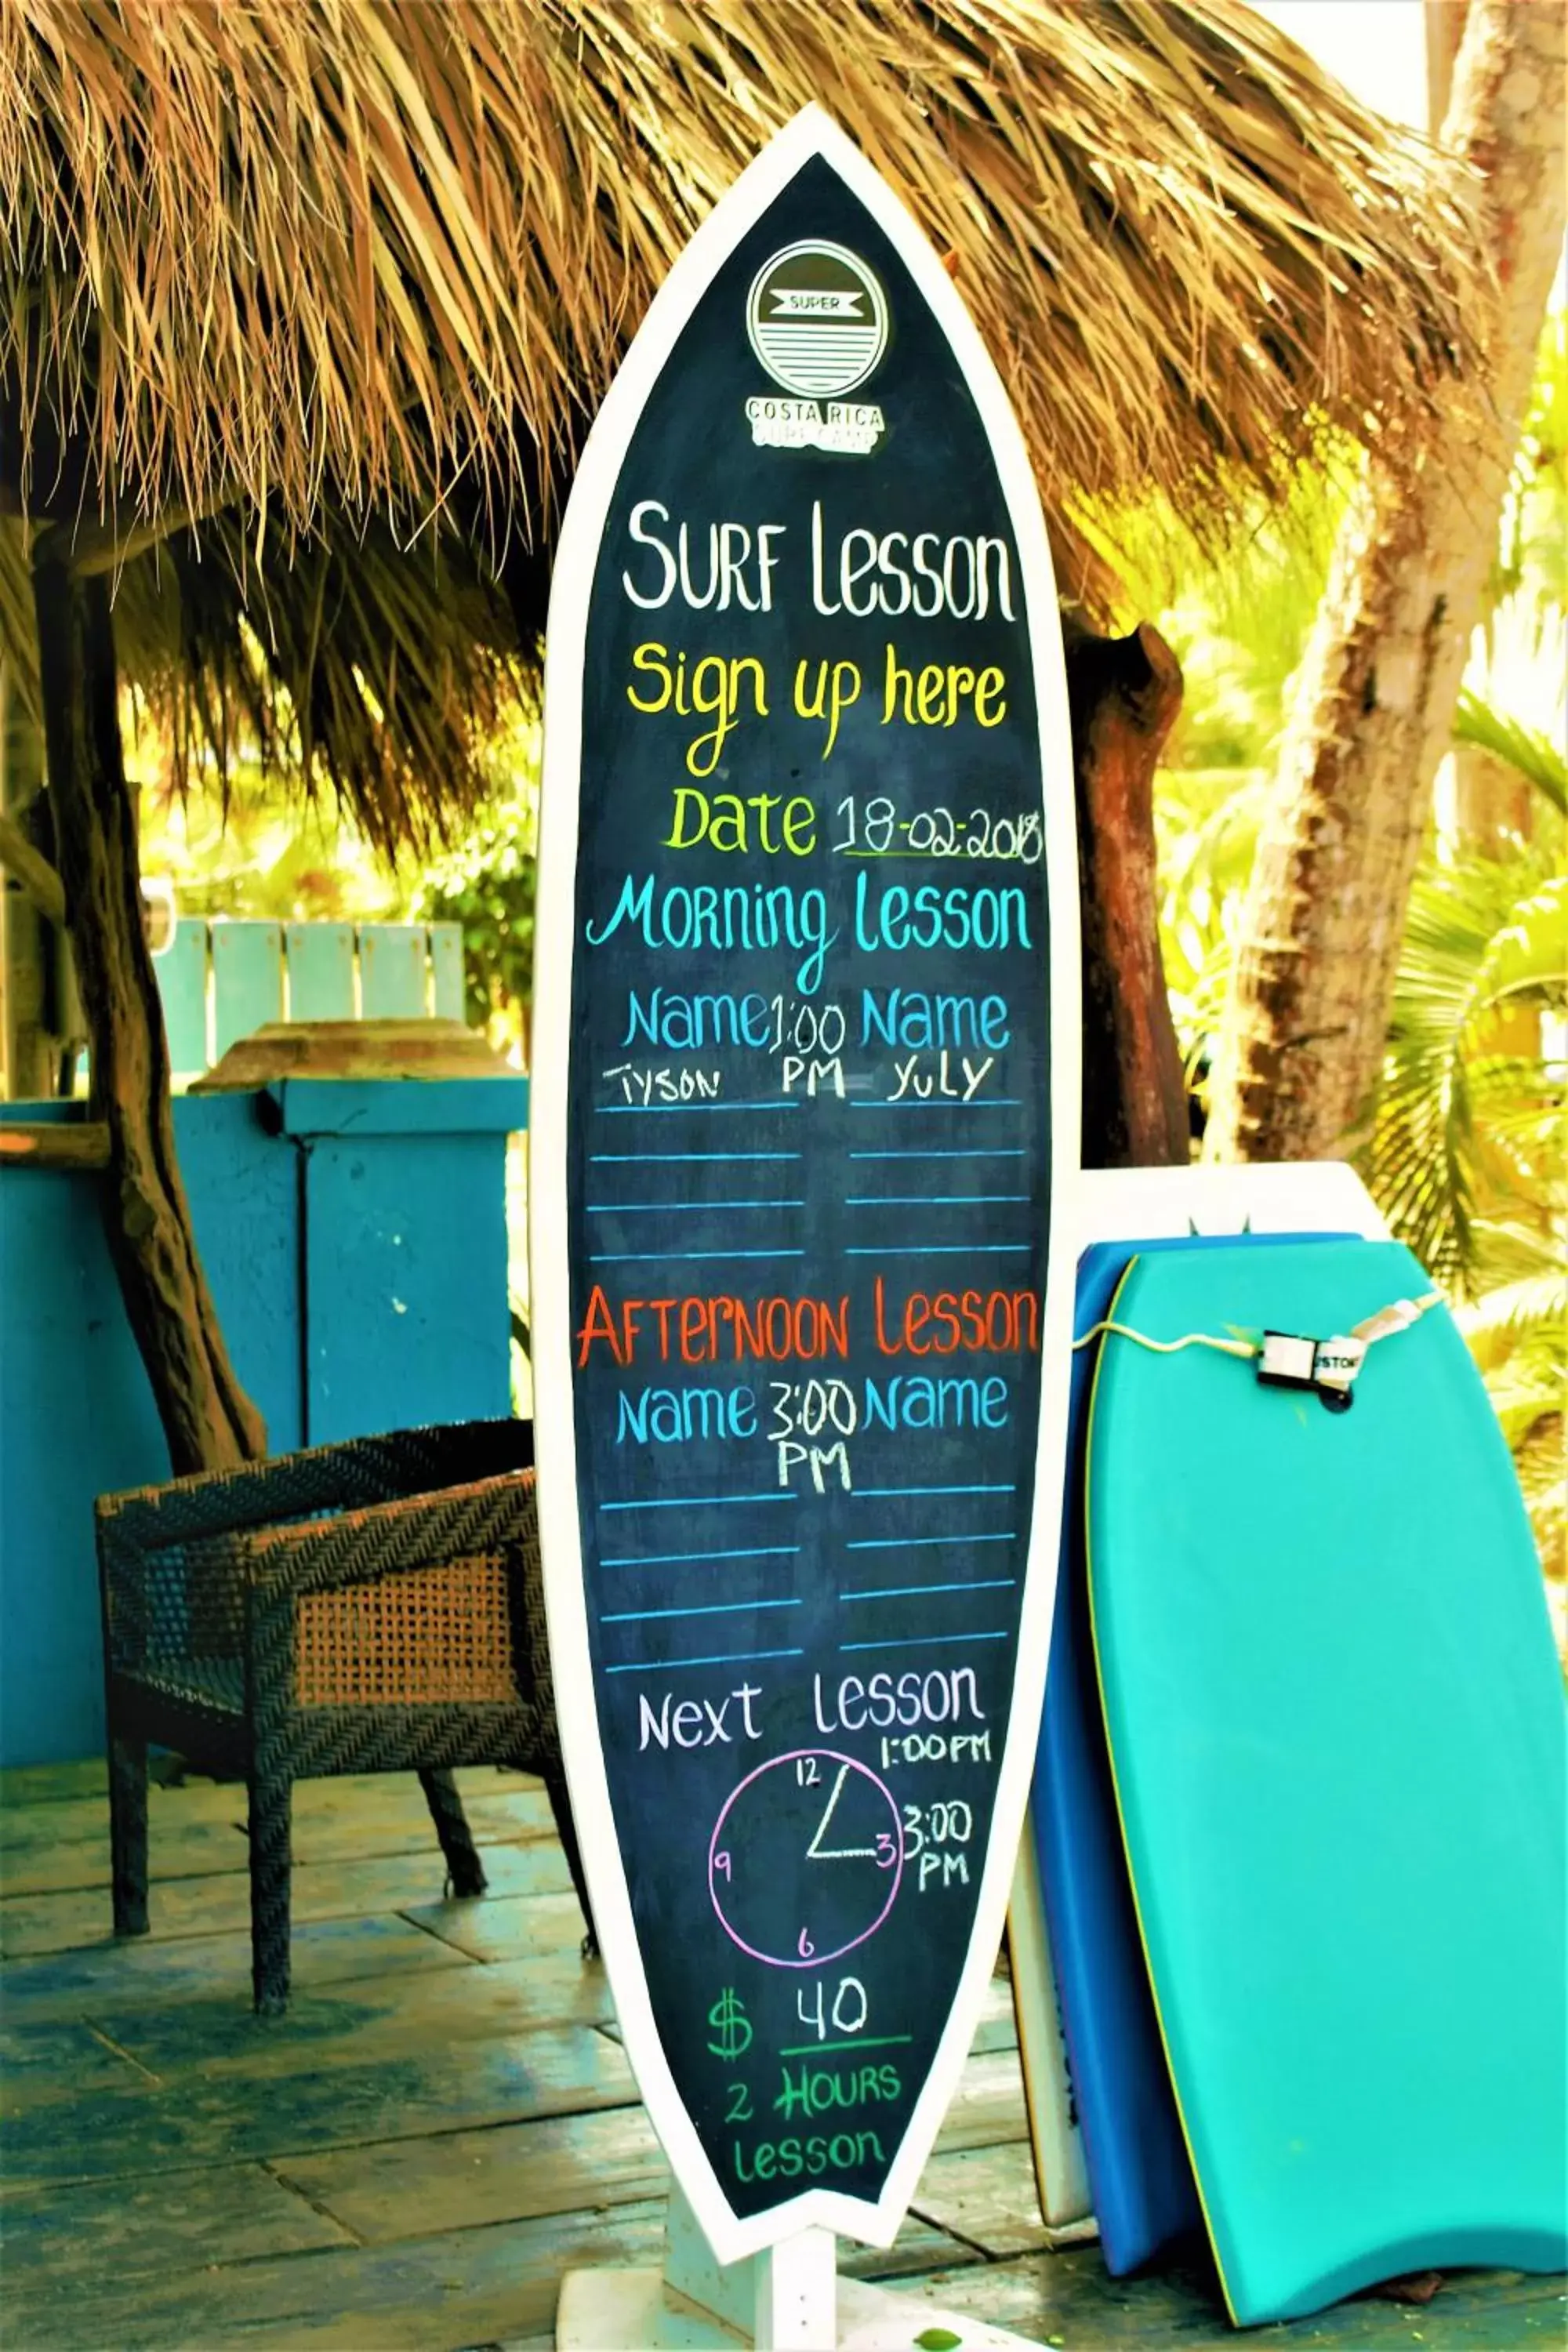 SUPER
COSTA RICA
SURF CAMP
SURF Lesson
Sign up here
Date 18-02-2018
Morning Lesson
Name 1:00 Name
TYSON PM YULY
Afternoon Lesson
Name 3:00 Name
PM
Next Lesson
1:00 PM
12
3:00
3
9
PM
6
$ 40
2 Hours
Lesson